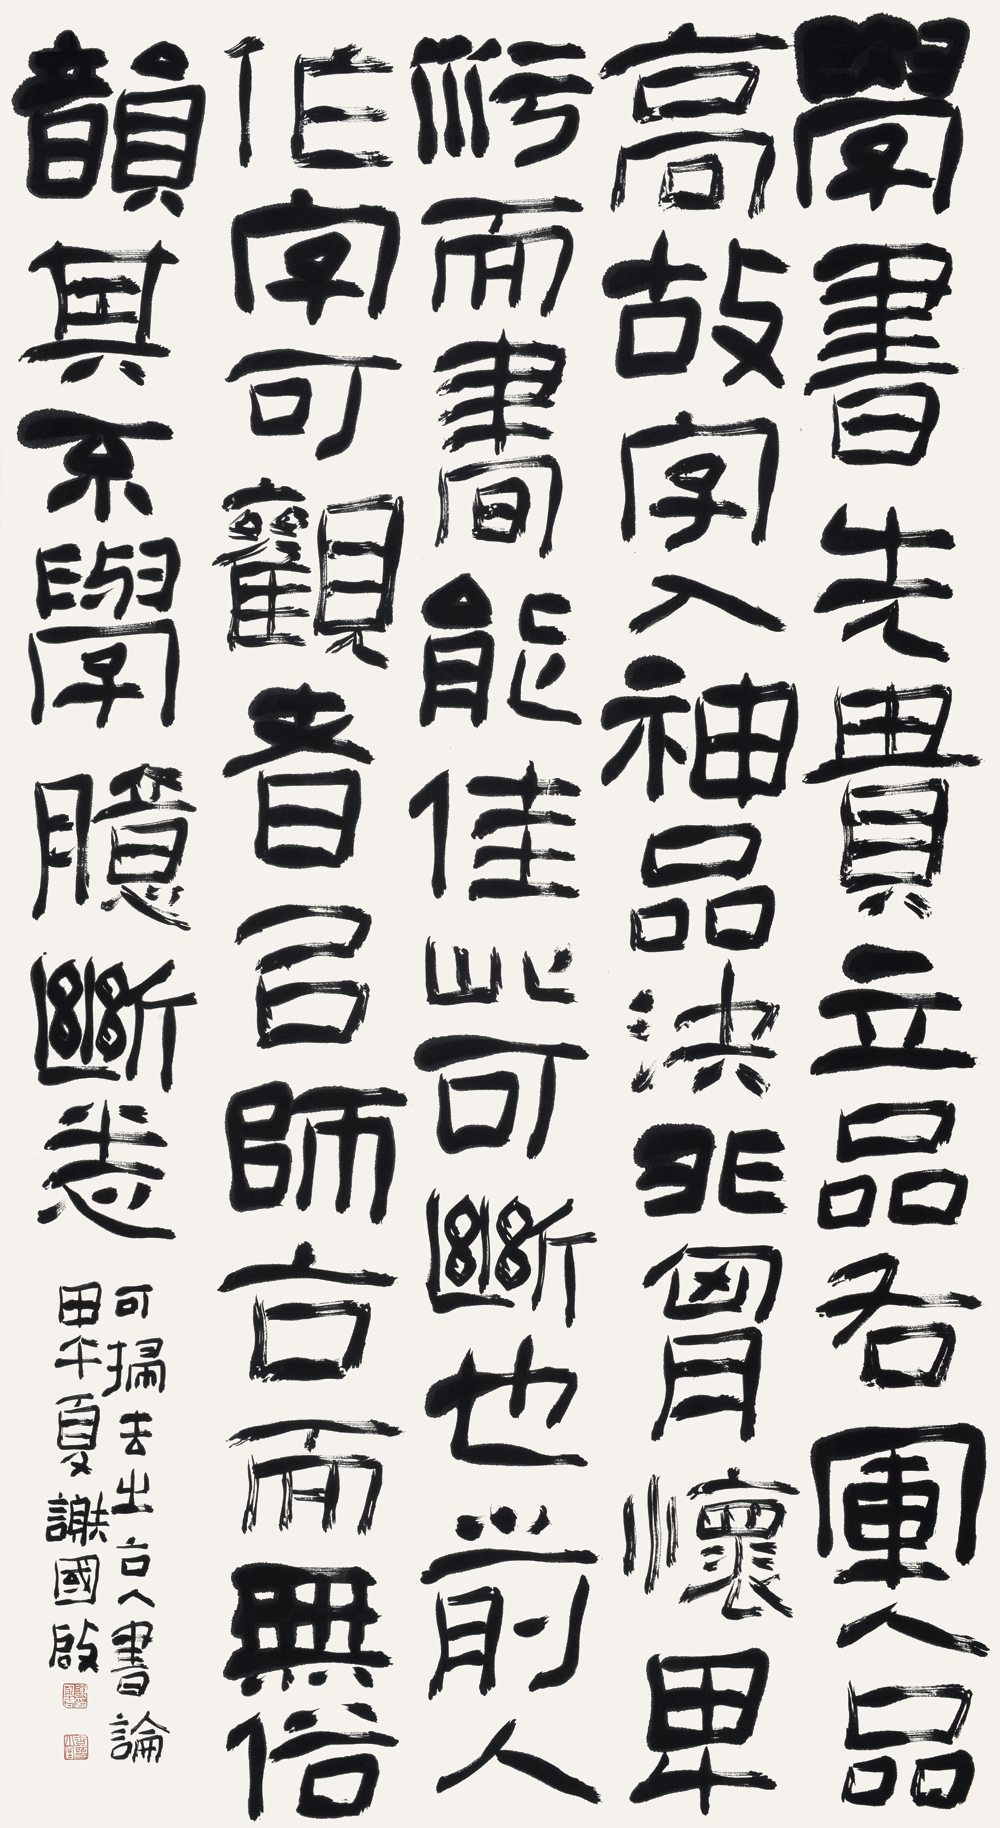 學書先貴立品右軍人品
高故字入神品決非胷懷卑
污而書能佳此可斷也前人
作字可觀者多師古而無俗
韻其不學臆斷悉
可掃去出古人書論
甲午夏謝國啟